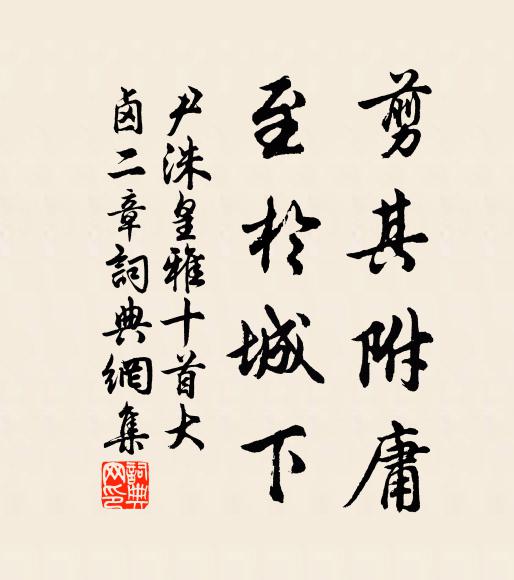 剪其附庸
至於城下
尹洙皇雅十首大
鹵二章詞典網集
詞典
网印